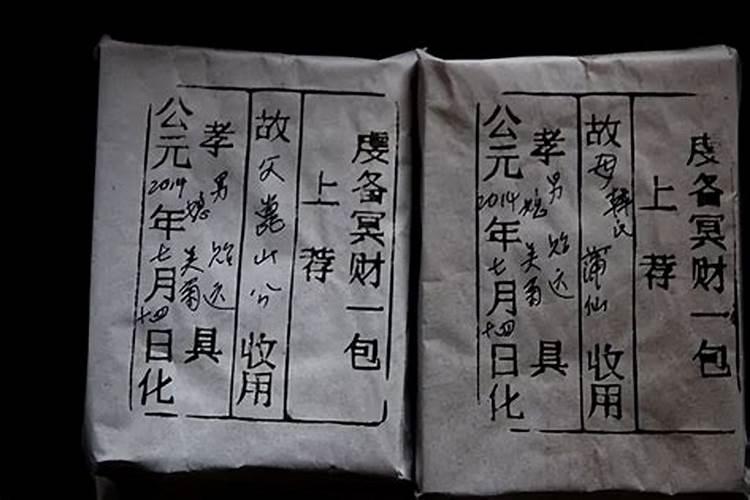 虔备冥财一包
上荐
故父山公收用
孝男媳贻远美菊具
公元2014年七月十四日化
虔备冥财一包
上荐
故母韩氏蒲仙收用
孝男媳贻远美菊具
公元2014年七月十四日化